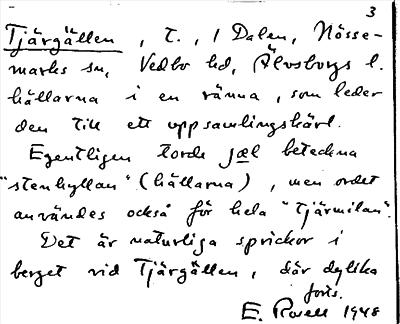 3
Tjärgällen, t., i Dalen, Nösse-
marks sn, Vedbo hd, Älvsborgs l.
hällarna i en ränna, som leder
den till ett uppsamlingskärl.
Egentligen torde jæl beteckna
"stenhyllan" (hällarna), men ordet
användes också för hela "tjärmilan".
Det är naturliga sprickor i
berget vid Tjärgällen, där dylika
forts.
E. Rosell 1948